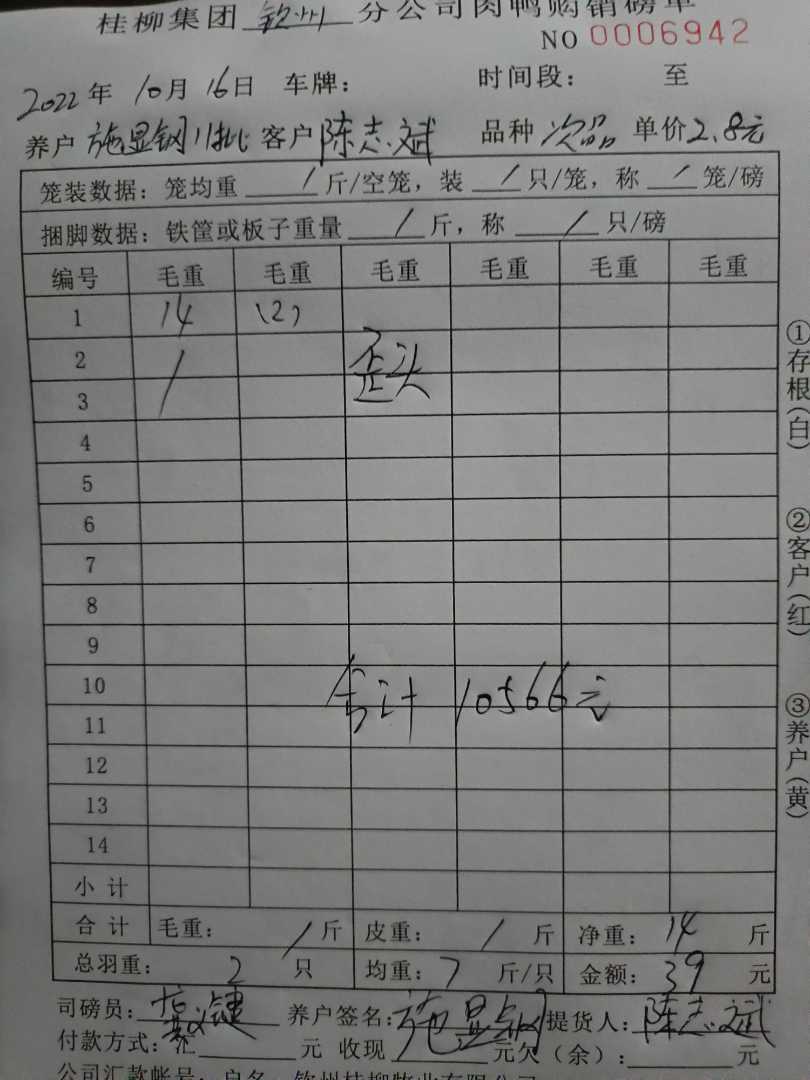 桂柳集团 钦州 分公司肉鸭购销磅单
NO 0006942
2022年 10月 16日 车牌： 时间段： 至
养户 施显钢11批 客户 陈志斌 品种 次品 单价2.8元
笼装数据：笼均重 / 斤/空笼，装 / 只/笼，称 / 笼/磅
捆脚数据：铁筐或板子重量 / 斤，称 / 只/磅
编号 毛重 毛重 毛重 毛重 毛重 毛重
1 14 (2)
2 / 歪头
3
4
5
6
7
8
9
10 合计 10566元
11
12
13
14
小计
合计 毛重： / 斤 皮重： / 斤 净重： 14 斤
总羽重： 2 只 均重： 7 斤/只 金额： 39 元
司磅员： 养户签名：施显钢 提货人：陈志斌
付款方式：汇 元 收现 元欠（余）： 元
公司汇款帐号：户名：钦州桂柳牧业有限公司
①存根(白)
②客户(红)
③养户(黄)